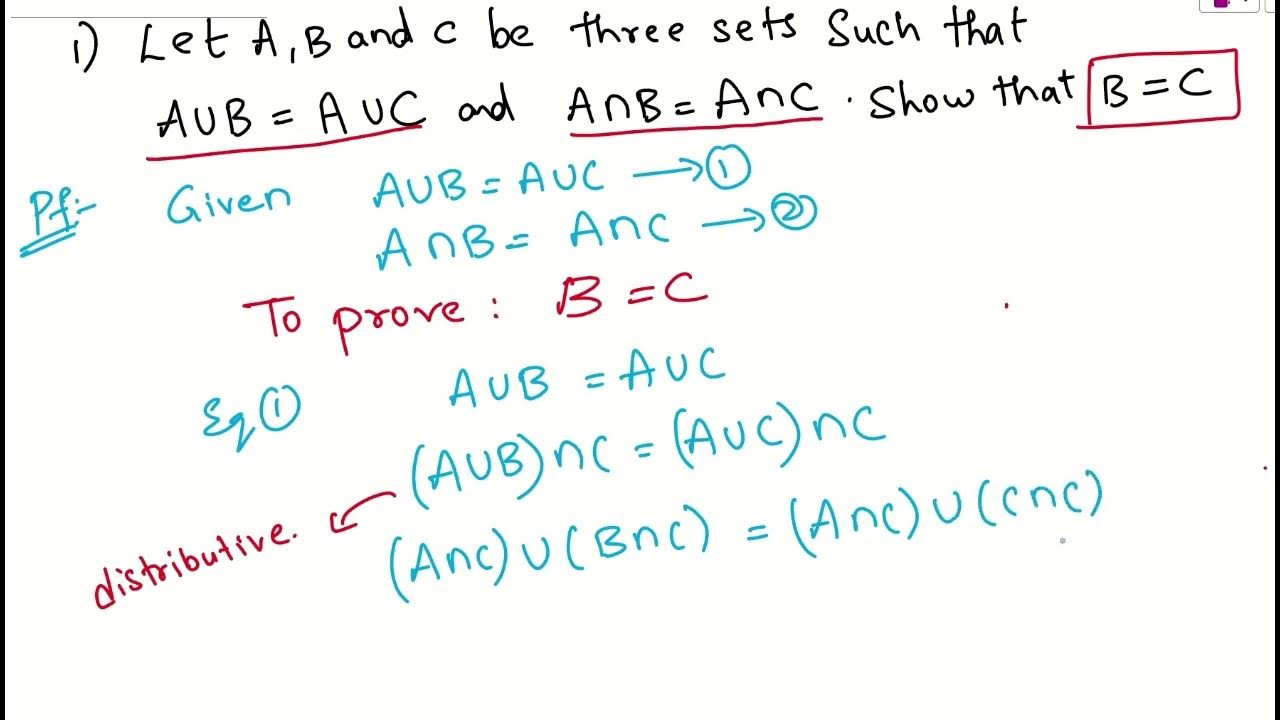 1) Let A, B and C be three sets such that
A∪B = A∪C and A∩B = A∩C. Show that B = C
Pf:- Given A∪B = A∪C → ①
A∩B = A∩C → ②
To prove: B = C
Eq ① A∪B = A∪C
(A∪B)∩C = (A∪C)∩C
distributive. (A∩C)∪(B∩C) = (A∩C)∪(C∩C)